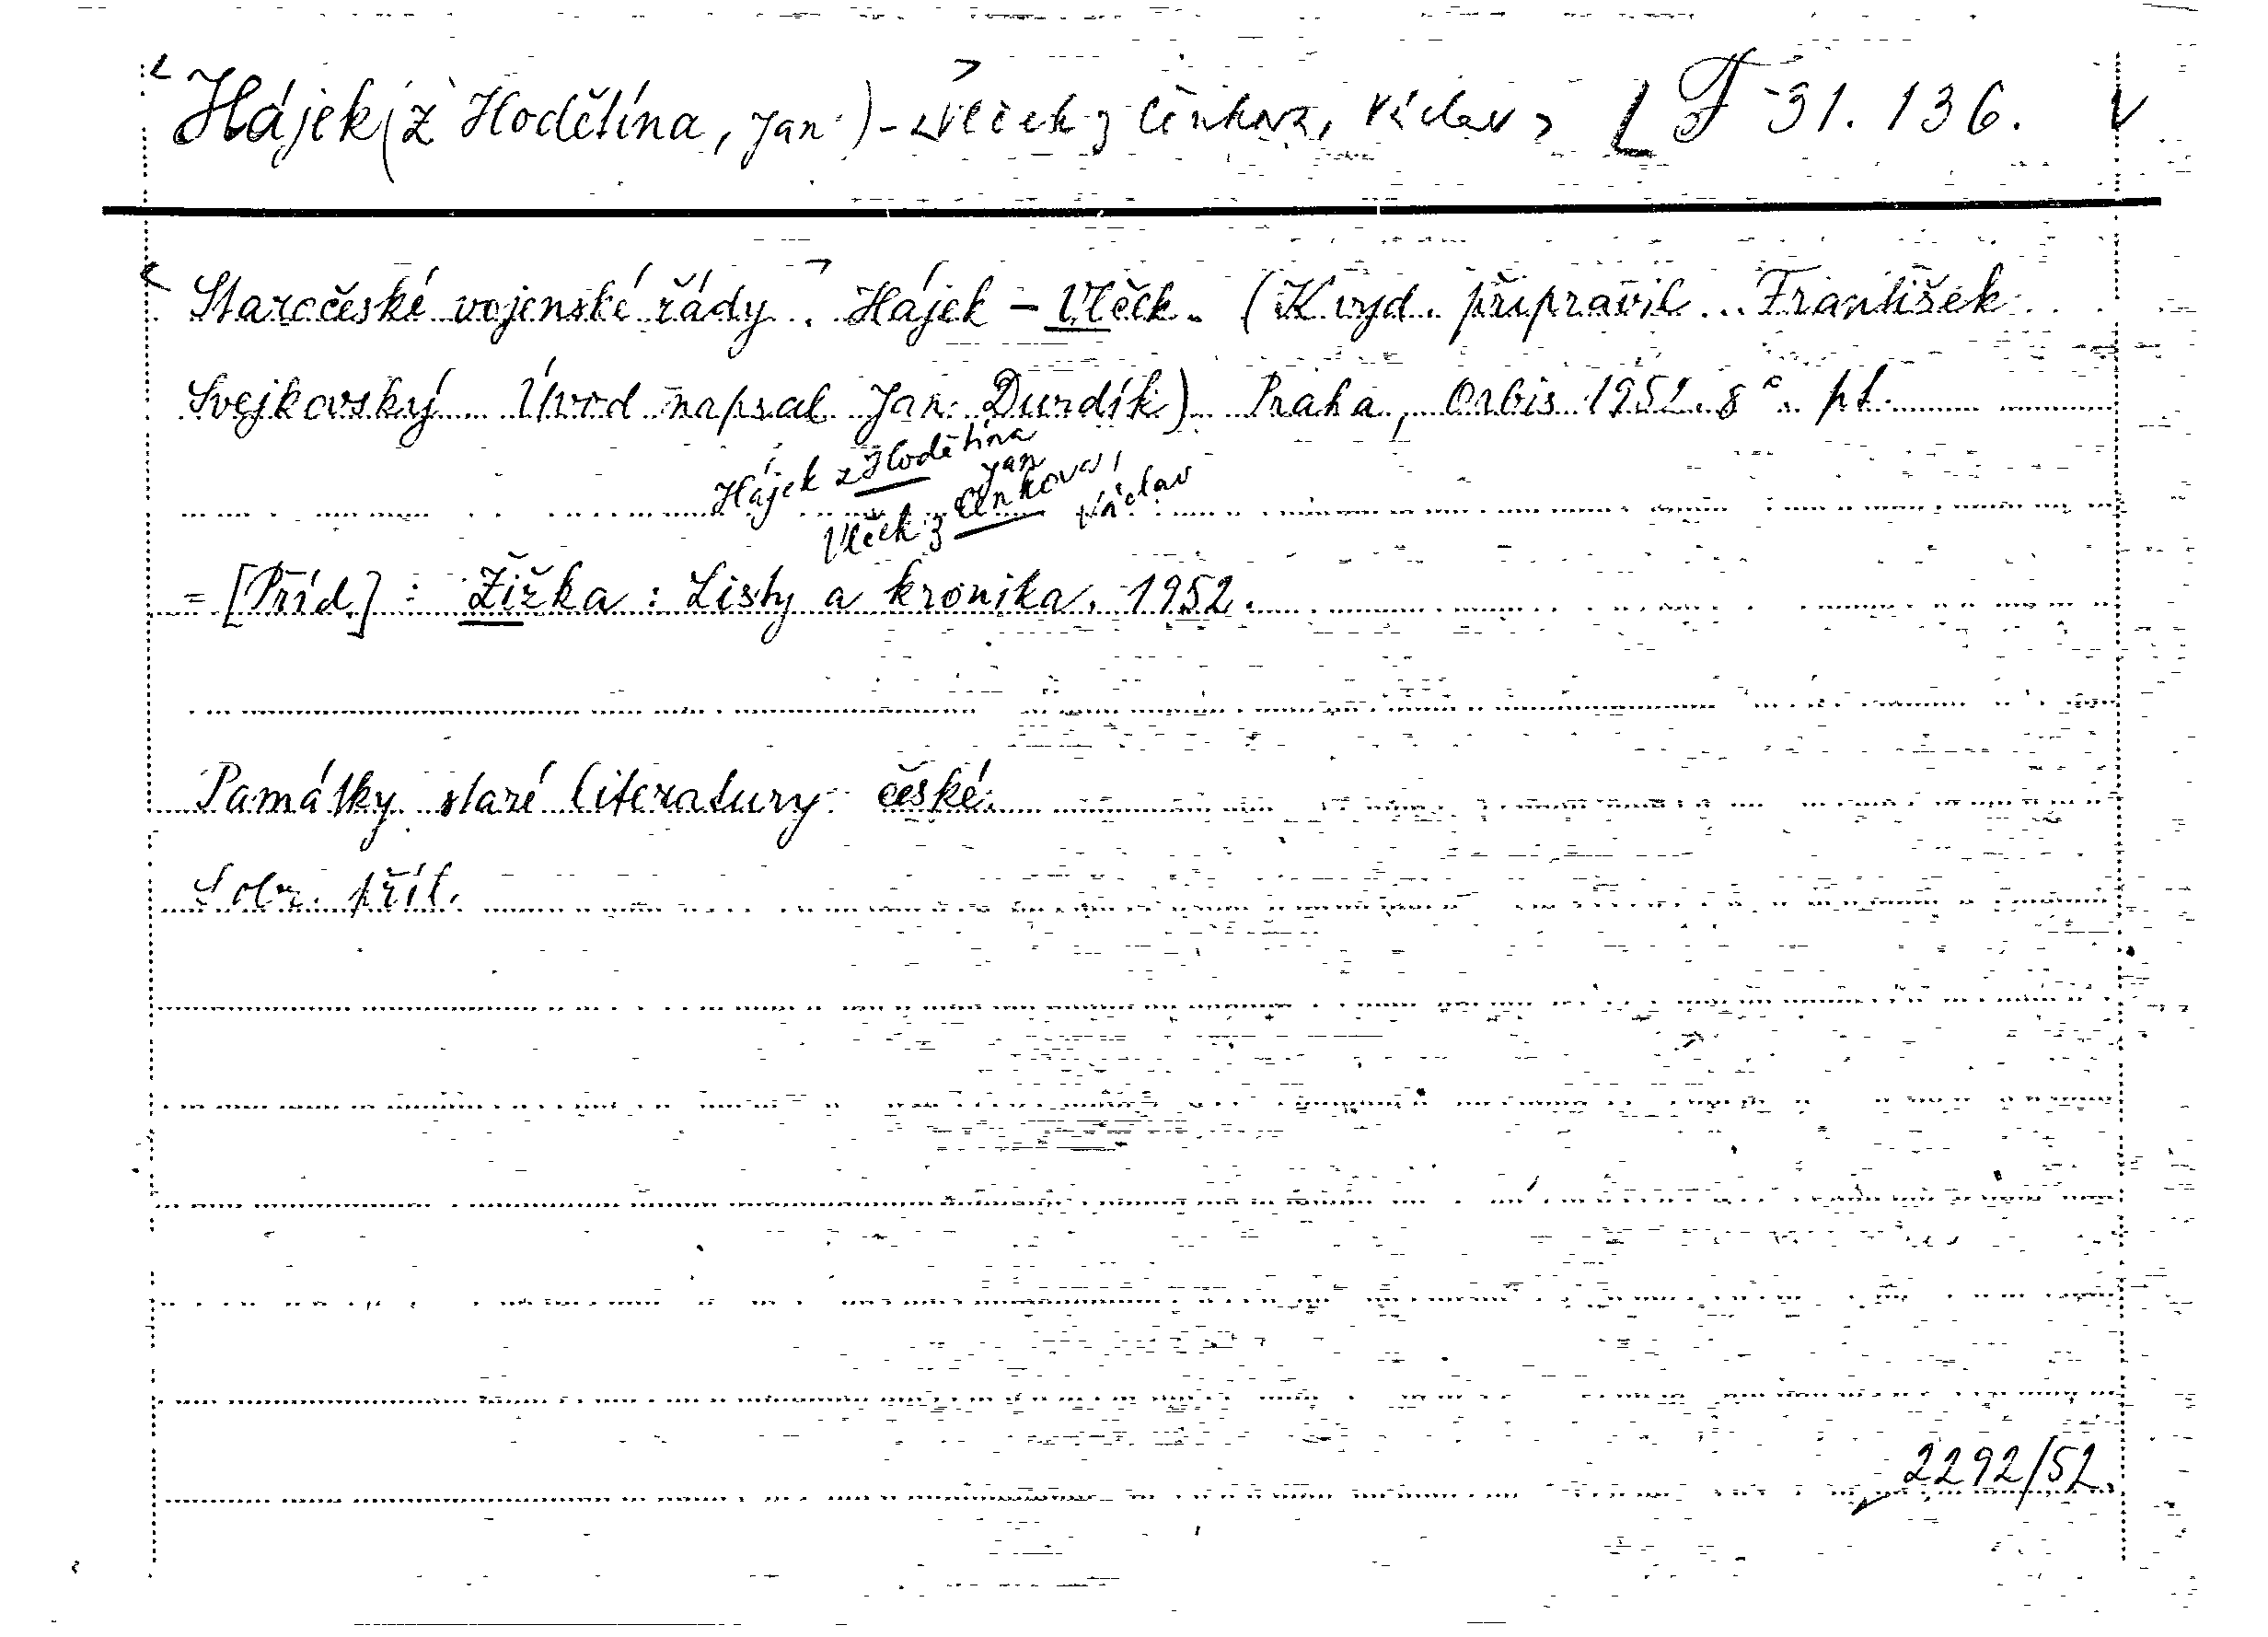 Hájek (z Hodětína, Jan) - Vlček z Čěnkova, Václav F 31.136.
Staročeské vojenské řády. Hájek - Vlček. (K vyd. připravil... František
Svejkovský. Úvod napsal Jan Durdík) Praha, Orbis 1952. 8°. pl.
Hájek z Hodětína Jan
Vlček z Čěnkova, Václav
= [Příd.] : Žižka : Listy a kronika. 1952.
Památky staré literatury české.
S obr. příl.
2292/52.